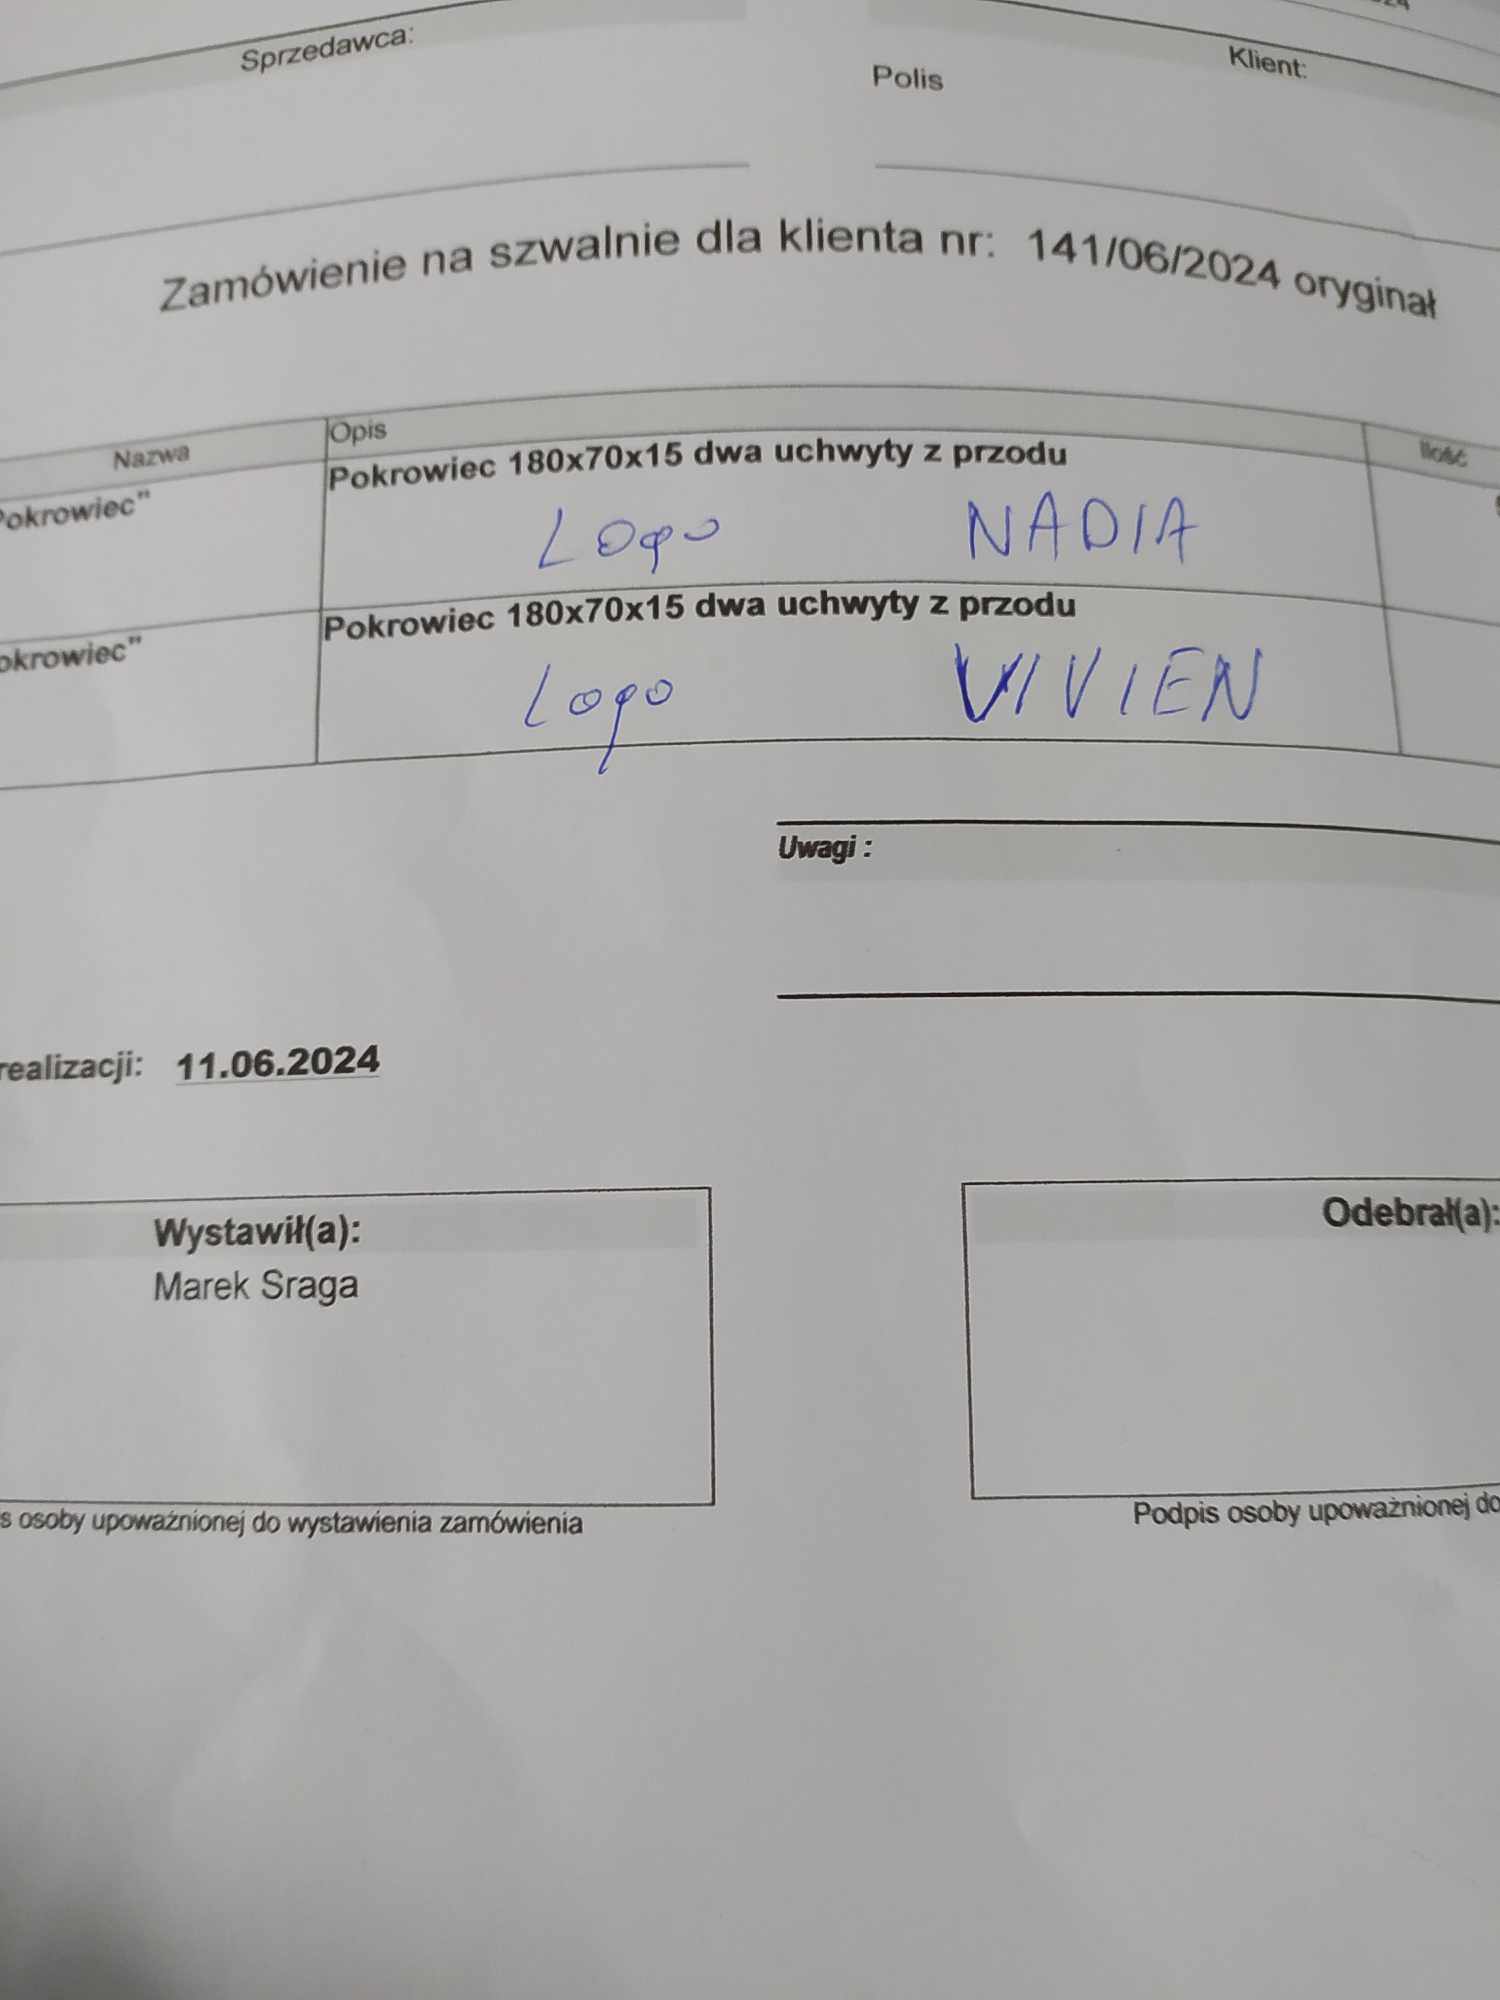 Sprzedawca:
Klient:
Polis
Zamówienie na szwalnie dla klienta nr: 141/06/2024 oryginał
Nazwa Opis Ilość
Pokrowiec" Pokrowiec 180x70x15 dwa uchwyty z przodu
Logo NADIA
okrowiec" Pokrowiec 180x70x15 dwa uchwyty z przodu
Logo VIVIEN
Uwagi :
realizacji: 11.06.2024
Wystawił(a):
Marek Sraga
Odebrał(a):
s osoby upoważnionej do wystawienia zamówienia
Podpis osoby upoważnionej do